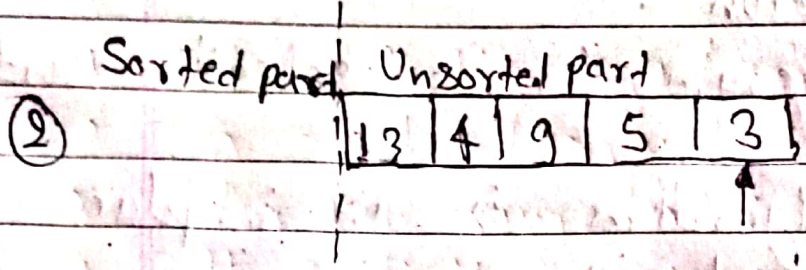 Sorted part Unsorted part
② 13 4 9 5 3